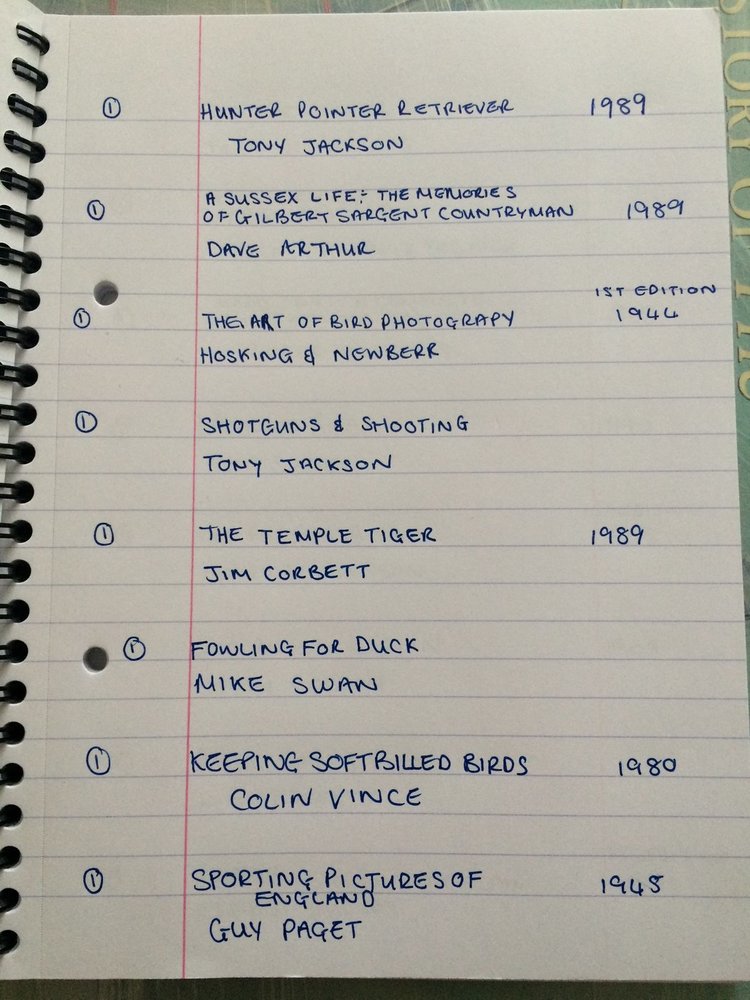 ① HUNTER POINTER RETRIEVER 1989
TONY JACKSON
A SUSSEX LIFE:- THE MEMORIES
① OF GILBERT SARGENT COUNTRYMAN 1989
DAVE ARTHUR
1ST EDITION
① THE ART OF BIRD PHOTOGRAPY 1944
HOSKING & NEWBERR
① SHOTGUNS & SHOOTING
TONY JACKSON
① THE TEMPLE TIGER 1989
JIM CORBETT
① FOWLING FOR DUCK
MIKE SWAN
① KEEPING SOFTBILLED BIRDS 1980
COLIN VINCE
① SPORTING PICTURES OF 1945
ENGLAND
GUY PAGET
STORY OF